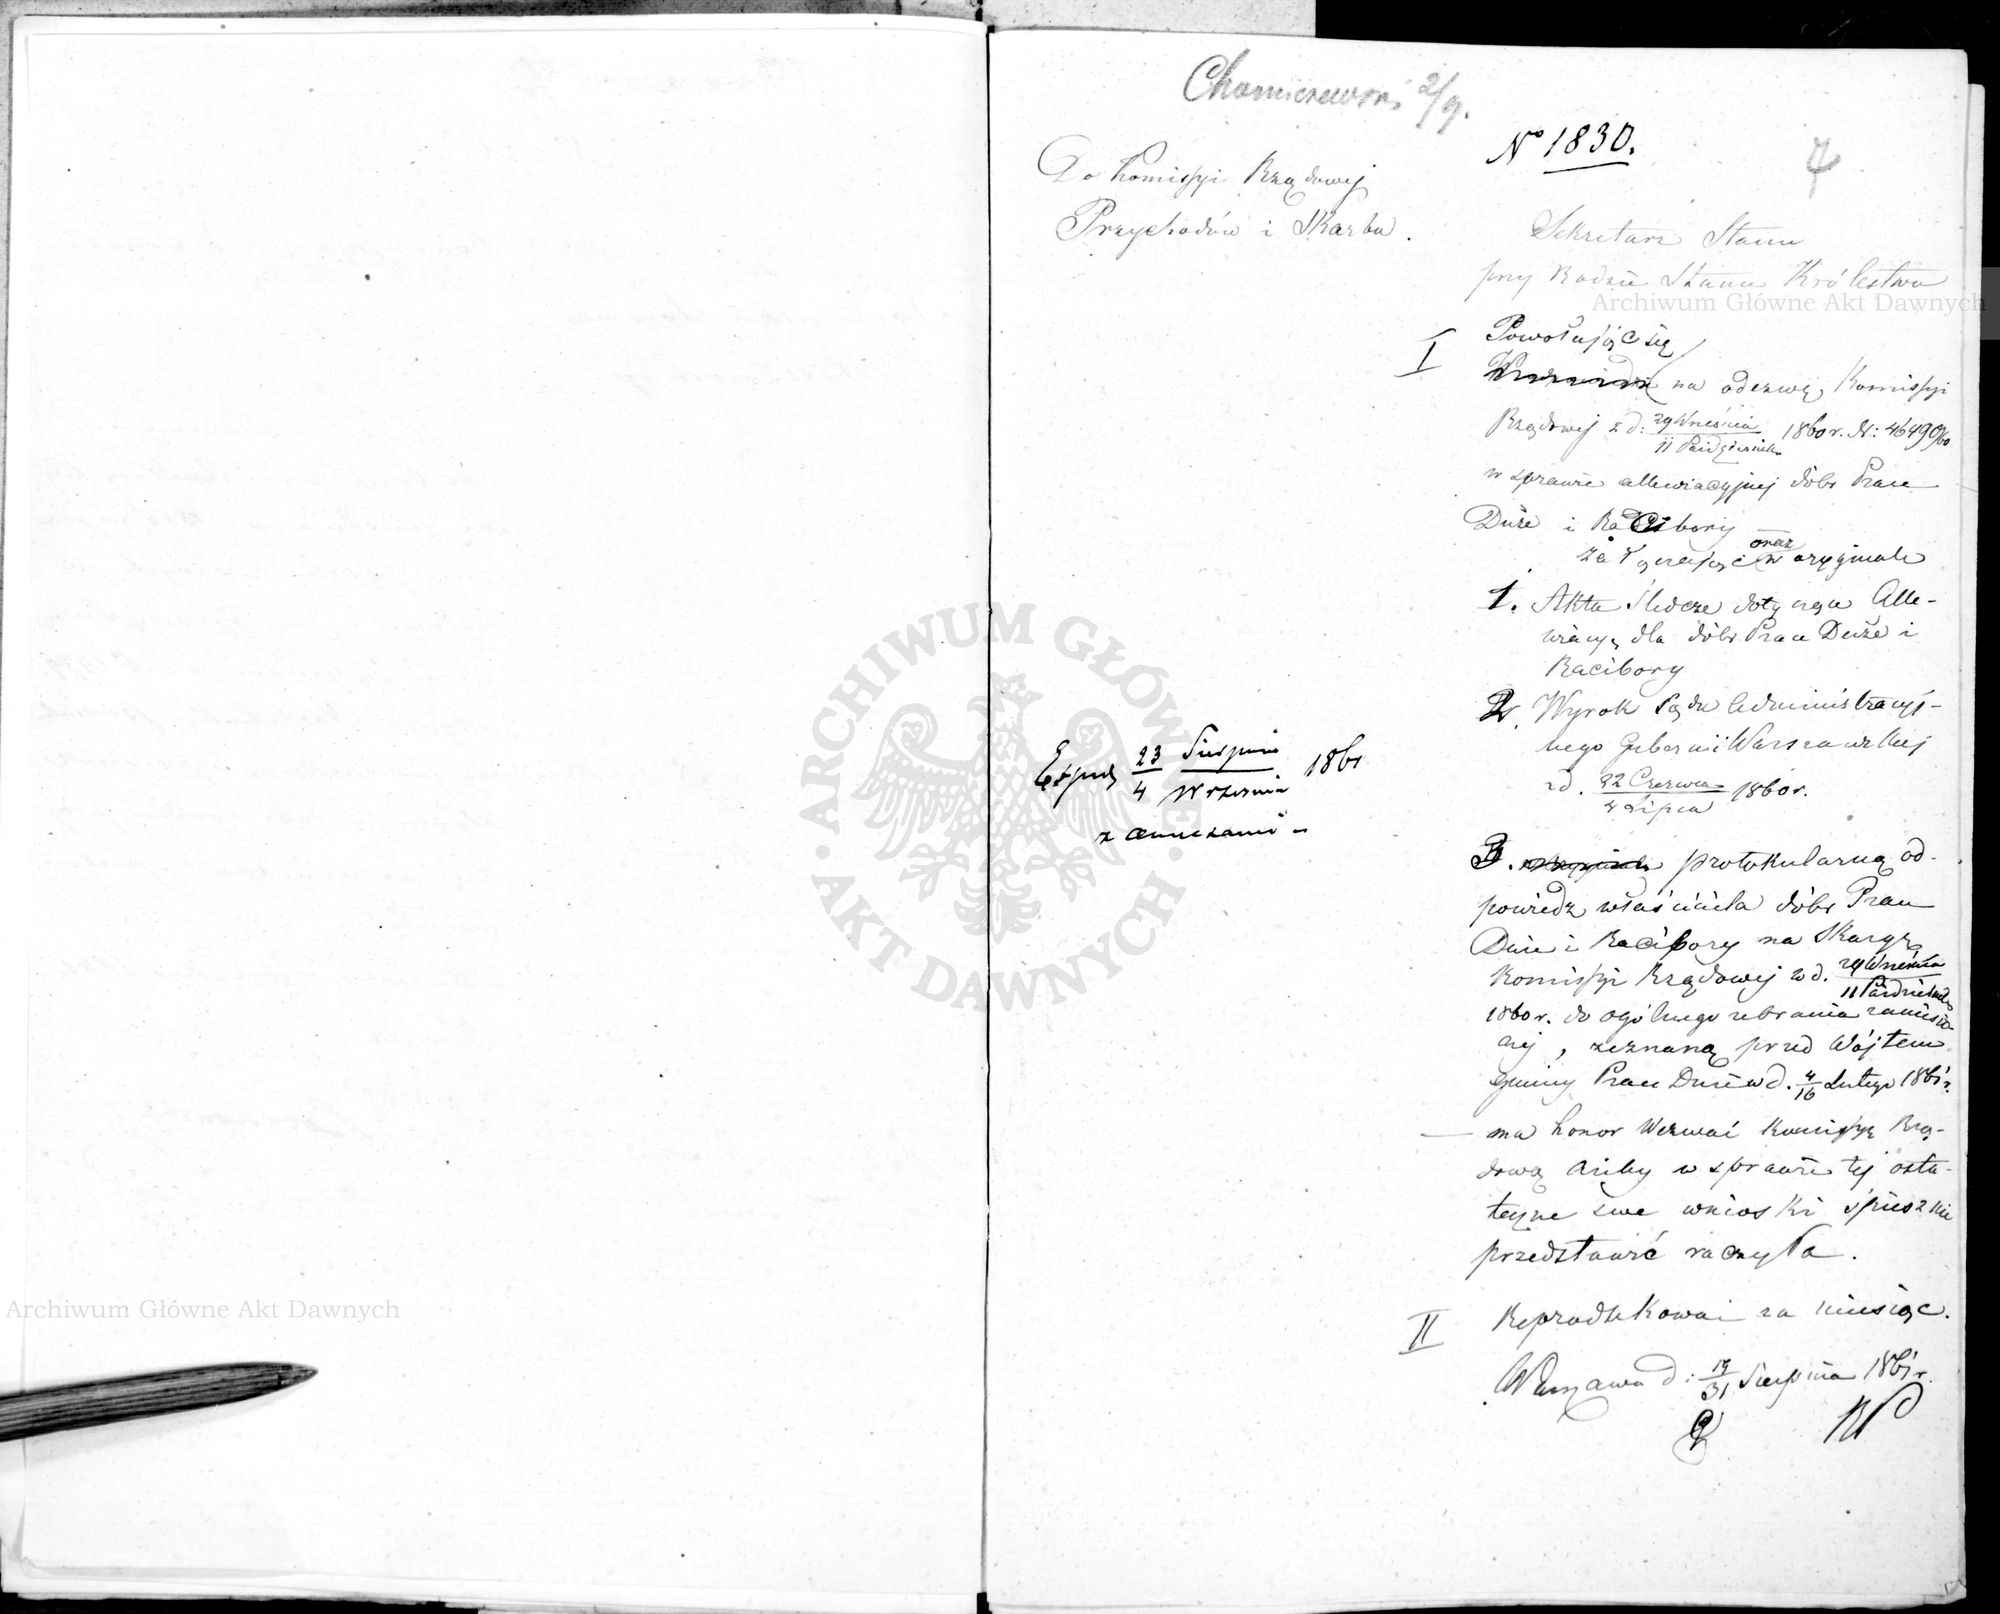 2/9.
Nº 1830.
Do Komissyi Rządowej
Przychodów i Skarbu.
Sekretarz Stanu
przy Radzie Stanu Królestwa
Archiwum Główne Akt Dawnych
I Powołując się
na odezwę Komissyi
Rządowej z d: 29 Wrześnią / 11 Paździenik 1860 r. N: 46490/60
w sprawie allewiacyjnej dóbr Prace
Duże i Racibory
załączając oraz w oryginale
1. Akta śledcze dotyczące Alle-
wiacyi dla dóbr Prace Duże i
Racibory
2. Wyrok Sądu Administracyj-
nego Gubernii Warszawskiej
z d. 22 Czerwca / 4 Lipca 1860 r.
3. protokularną od-
powiedz właściciela dóbr Prace
Duże i Racibory na skargę
Komissyi Rządowej z d. 29 Wrześnią / 11 Paździenika
1860 r. do ogólnego zebrania zaniesio-
nej, zeznaną przed Wójtem
Gminy Prace Duże w d. 4/16 Lutego 1861 r.
ma honor wezwać Komissyę Rzą-
dową ażeby w sprawie tej osta-
teczne swe wnioski śpiesznie
przedstawić raczyła.
II Reprodukować za miesiąc.
Warszawa d: 19/31 Sierpnia 1861 r.
Exped 23 Sierpnia / 4 Września 1861
z annexami -
ARCHIWUM GŁÓWNE · AKT DAWNYCH ·
Archiwum Główne Akt Dawnych